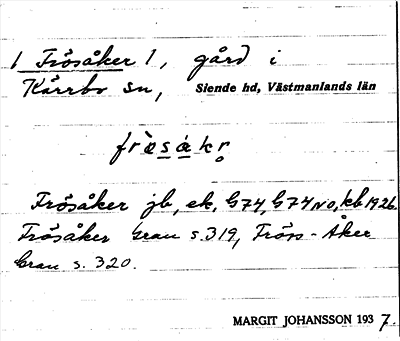 1 Frösåker 1, gård i
Kärrbo sn, Siende hd, Västmanlands län
frɷ̀sȧkr̥
Frösåker jb, ek, G74, G74NO, kb 1926.
Frösåker Grau s. 319, Frös-Åker
Grau s. 320.
MARGIT JOHANSSON 1937.